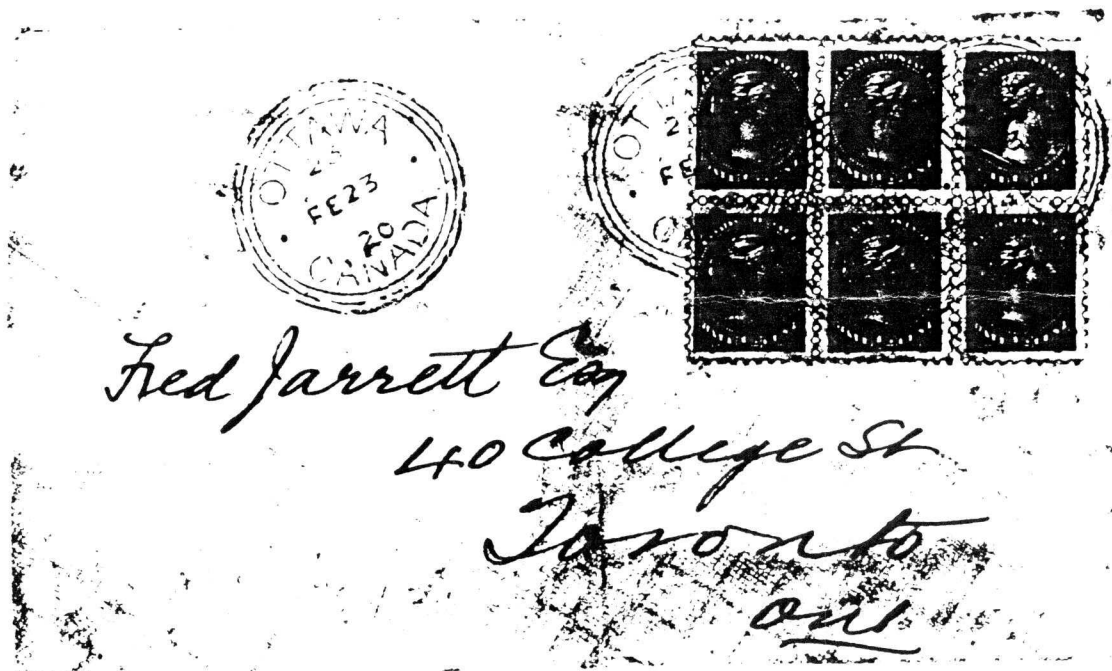 OTTAWA
23
FE 23
20
CANADA
OT
2
FE
C
Fred Jarrett Esq
40 College St
Toronto
Ont